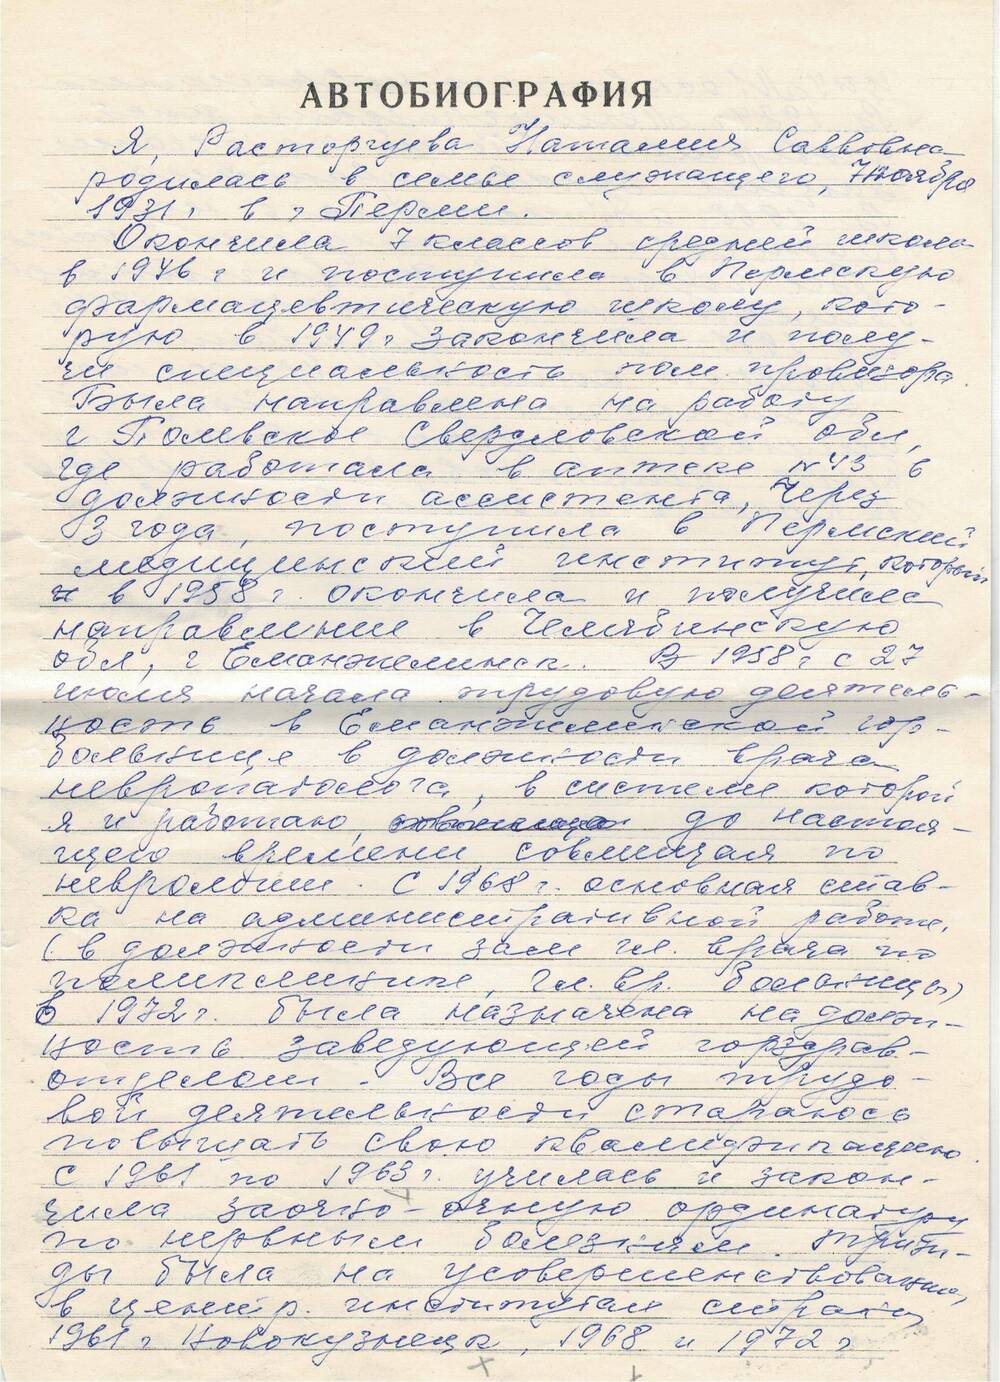 АВТОБИОГРАФИЯ
Я, Расторгуева Наталия Саввовна
родилась в семье служащего, 7 ноября
1931 г в г Перми.
Окончила 7 классов средней школы
в 1946 г и поступила в Пермскую
фармацевтическую школу, кото-
рую в 1949 г закончила и полу-
чи специальность пом. провизора.
Была направлена на работу
г Полевское Свердловской обл,
где работала в аптеке № 43 в
должности ассистента, Через
3 года, поступила в Пермский
медицинский институт, который
в 1958 г. окончила и получила
направление в Челябинскую
обл, г Еманжелинск. В 1958 г с 27
июля начала трудовую деятель-
ность в Еманжелинской гор-
больнице в должности врача
невропатолога, в системе которой
я и работаю, до настоя-
щего времени, совмещая по
неврологии. С 1968 г. основная став-
ка на административной работе,
(в должности зам гл. врача по
поликлинике, гл. вр. больницы)
в 1972 г. была назначена на долж-
ность заведующей горздрав-
отделом. Все годы трудо-
вой деятельности стараюсь
повышать свою квалификацию.
С 1961 по 1963 г. училась и закон-
чила заочно-очную ординатуру
по нервным болезням. Трижы-
ды была на усовершенствовании,
в центр. институтах страны,
1961 г Новокузнецк, 1968 и 1972 г